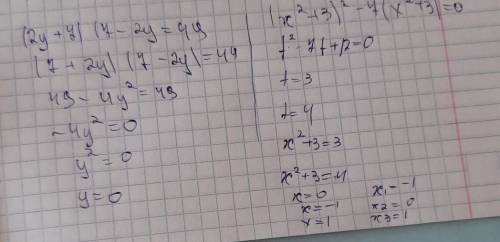 (2y+7) (7-2y=49
(7+2y) (7-2y)=49
49-4y²=49
-4y²=0
y²=0
y=0
(x²+3)²-7(x²+3)=0
t²-7t+12=0
t=3
t=4
x²+3=3
x²+3=4
x=0
x=-1
x=1
x1=-1
x2=0
x3=1